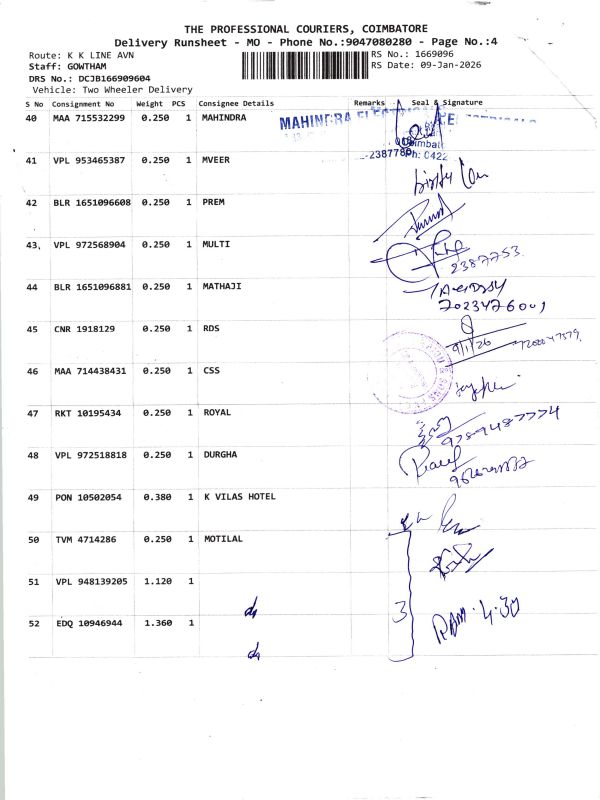 THE PROFESSIONAL COURIERS, COIMBATORE
Delivery Runsheet - MO - Phone No.:9047080280 - Page No.:4
Route: K K LINE AVN
RS No.: 1669096
Staff: GOWTHAM
RS Date: 09-Jan-2026
DRS No.: DCJB166909604
Vehicle: Two Wheeler Delivery
S No Consignment No Weight PCS Consignee Details Remarks Seal & Signature
40 MAA 715532299 0.250 1 MAHINDRA
MAHINDRA
Ph: 0422
41 VPL 953465387 0.250 1 MVEER
42 BLR 1651096608 0.250 1 PREM
43, VPL 972568904 0.250 1 MULTI
2387753
44 BLR 1651096881 0.250 1 MATHAJI
7023476001
45 CNR 1918129 0.250 1 RDS
9/1/26
46 MAA 714438431 0.250 1 CSS
47 RKT 10195434 0.250 1 ROYAL
9789487774
48 VPL 972518818 0.250 1 DURGHA
49 PON 10502054 0.380 1 K VILAS HOTEL
50 TVM 4714286 0.250 1 MOTILAL
51 VPL 948139205 1.120 1
3
52 EDQ 10946944 1.360 1
RAM. 4.30